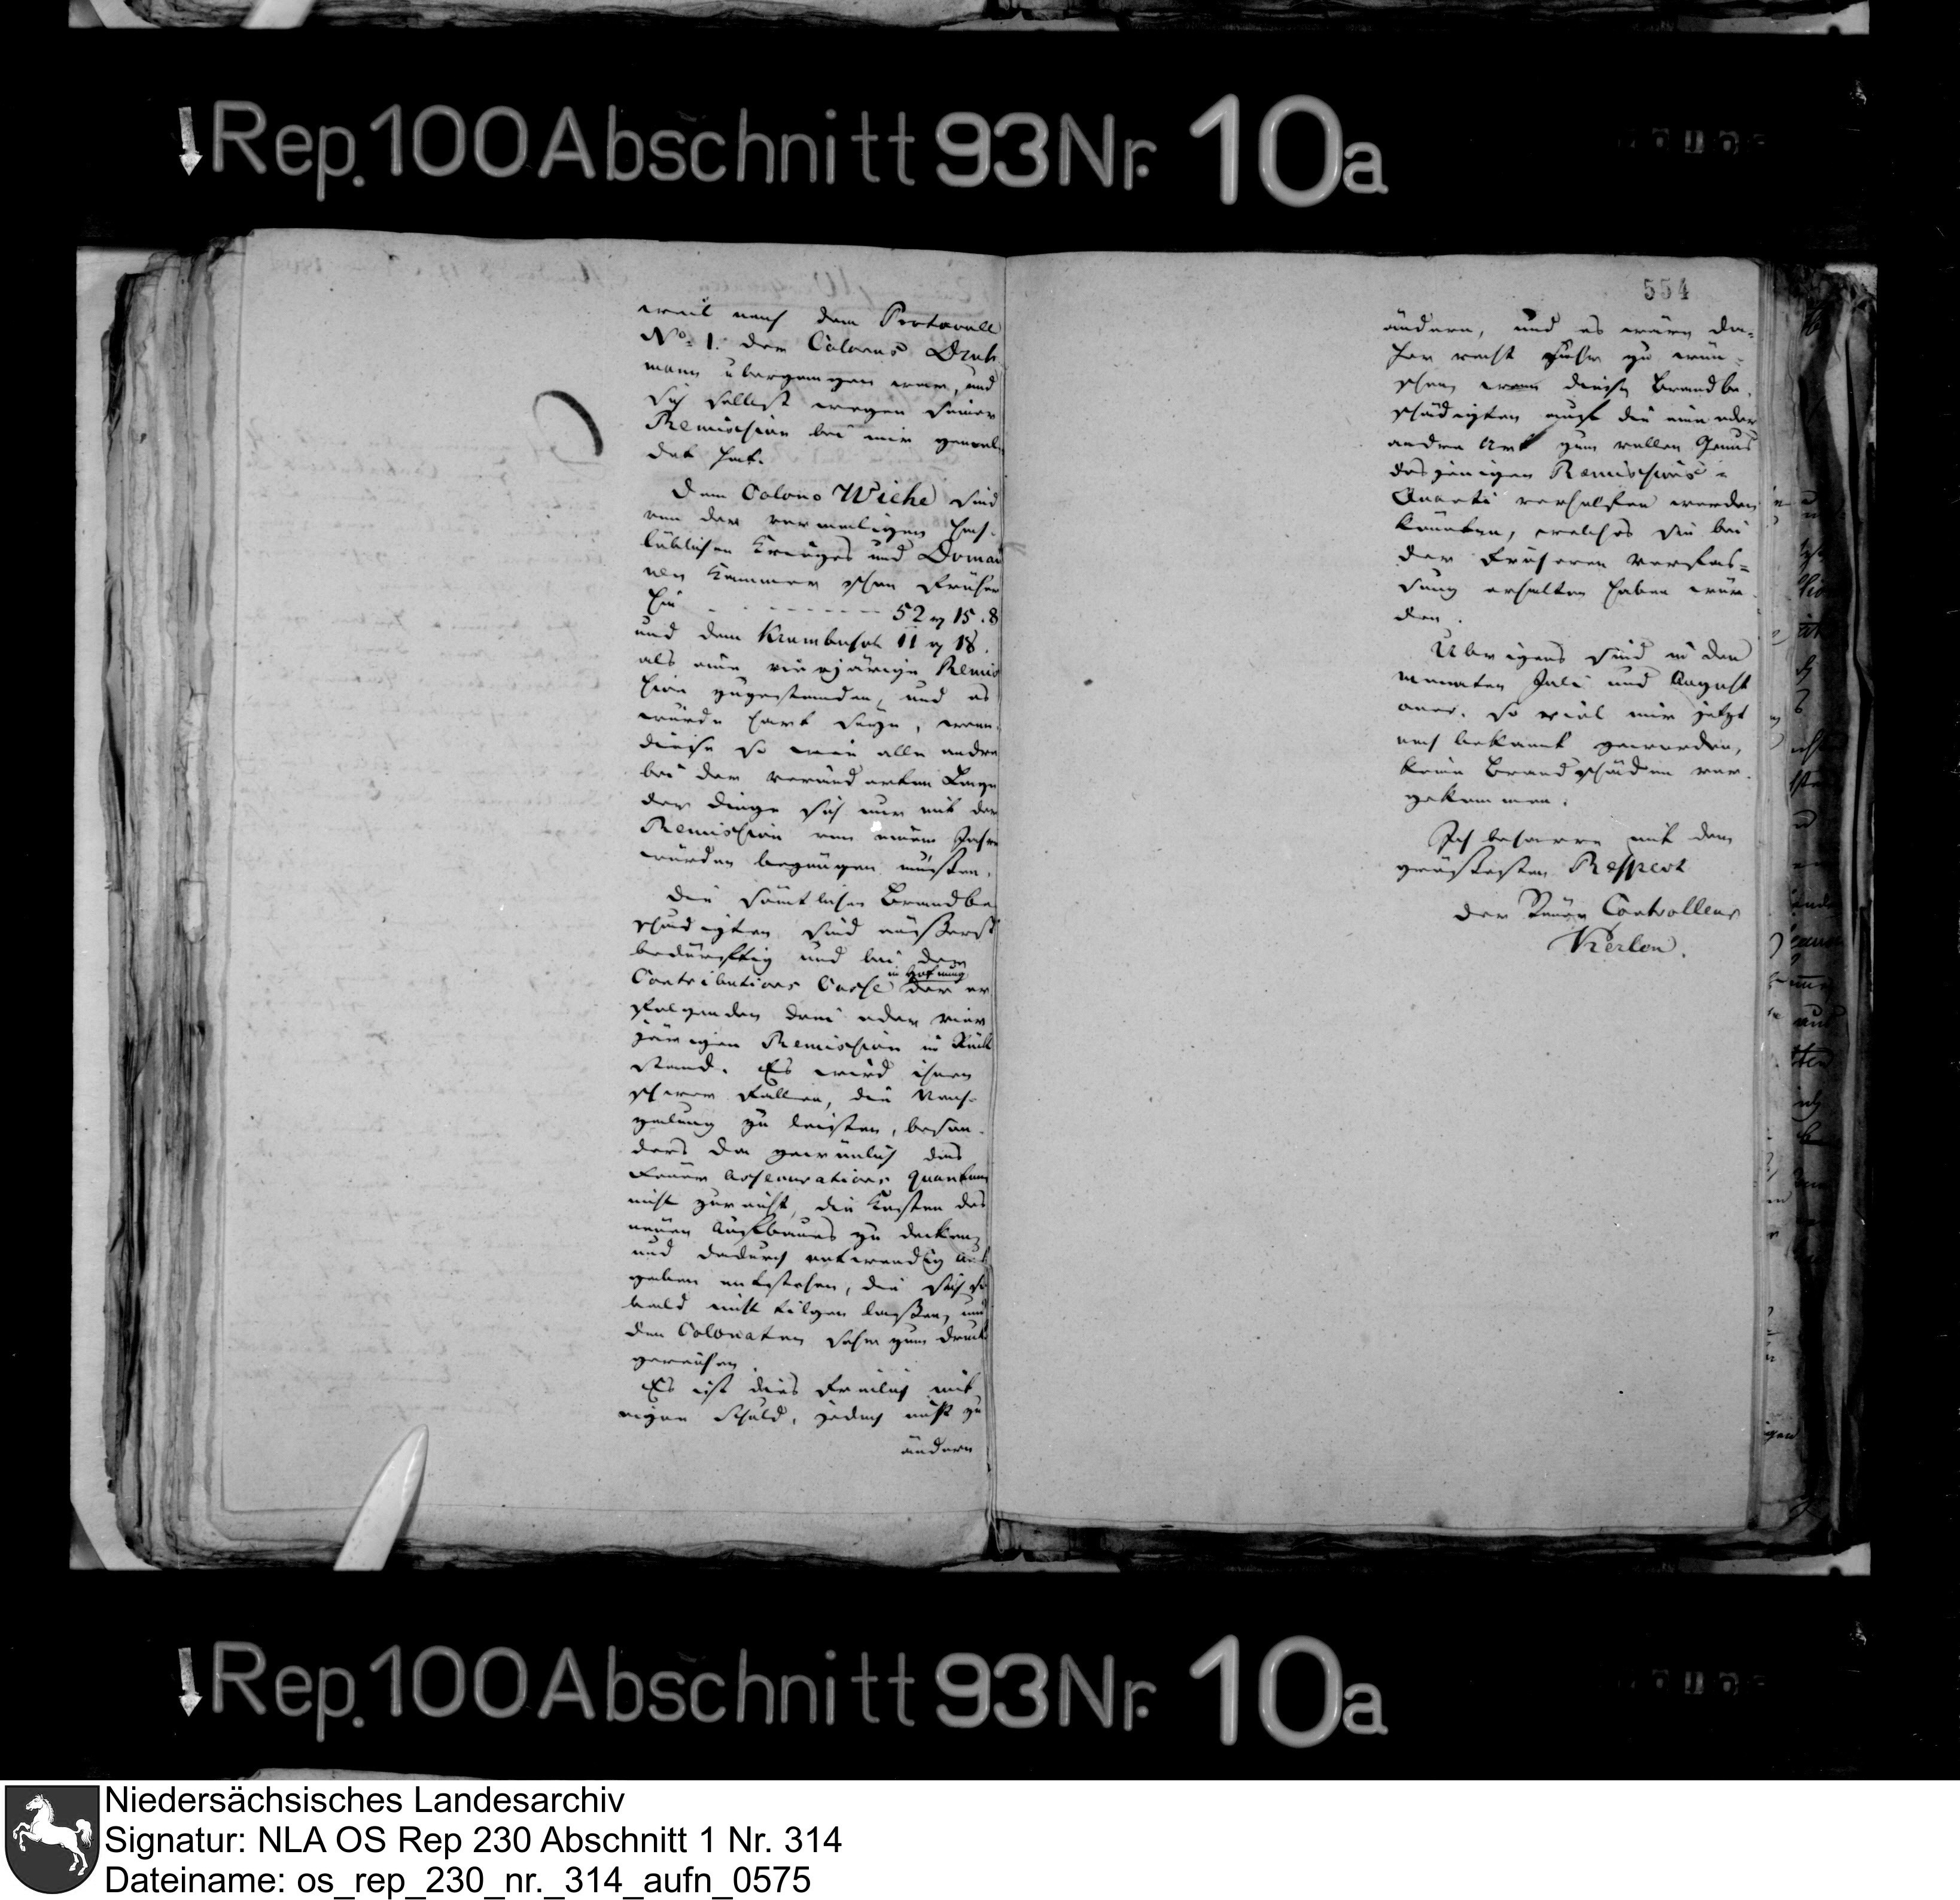 Rep. 100 Abschnitt 93 Nr. 10a
weil nach dem Protocolle
No. 1. der Colonus Druk
mann übergangen war, und
sich selbst wegen seiner
Remission bei mir gemel
det hat.
Dem Colono Wiehe sind
von der vormaligen Hoch-
löblichen Krieges und Domai
nen Kammer schon früher
hin - - - - - 52 rt 15. 8
und dem Krumbusch 11 rt 18.
als eine vierjärige Remis
sion zugestanden, und es
würde hart seyn, wenn
diese so wie alle andre
bei der veränderten Lage
der Dinge sich nur mit der
Remission von einem Jahre
würden begnügen müssen.
Die sämtlichen Brandbe
schädigten sind äußerst
bedürftig und bei der
in Hofnung
Contributions Casse der er
folgenden drei oder vier
järigen Remission in Rück
stand. Es wird ihnen
schwer fallen, die Nach-
zalung zu leisten, beson-
ders da gewönlich das
Feuer Assecurations quantum
nicht zureicht, die Kosten des
neuen Aufbaues zu decken,
und dadurch notwendig Aus
gaben entstehen, die sich so
bald nicht tilgen laßen, und
den Colonaten sehr zum Druck
gereichen
Es ist dies freilich mit
eigene Schuld, jedoch nicht zu
ändern
554
ändern, und es wäre da-
her recht sehr zu wün-
schen, wenn diese Brandbe-
schädigten auf die eine oder
andre Art zum vollen Genus
desjenigen Remissions-
Quanti verholfen werden
könnten, welches sie bei
der früheren Verfas-
sung erhalten haben wür-
den.
Übrigens sind in den
Monaten Juli und August
so viel mir jetzt
noch bekant geworden,
keine Brandschäden vor-
gekommen.
Ich beharre mit dem
größesten Respect
der Steuer Controlleur
Kerlen.
Rep. 100 Abschnitt 93 Nr. 10a
Niedersächsisches Landesarchiv
Signatur: NLA OS Rep 230 Abschnitt 1 Nr. 314
Dateiname: os_rep_230_nr._314_aufn_0575